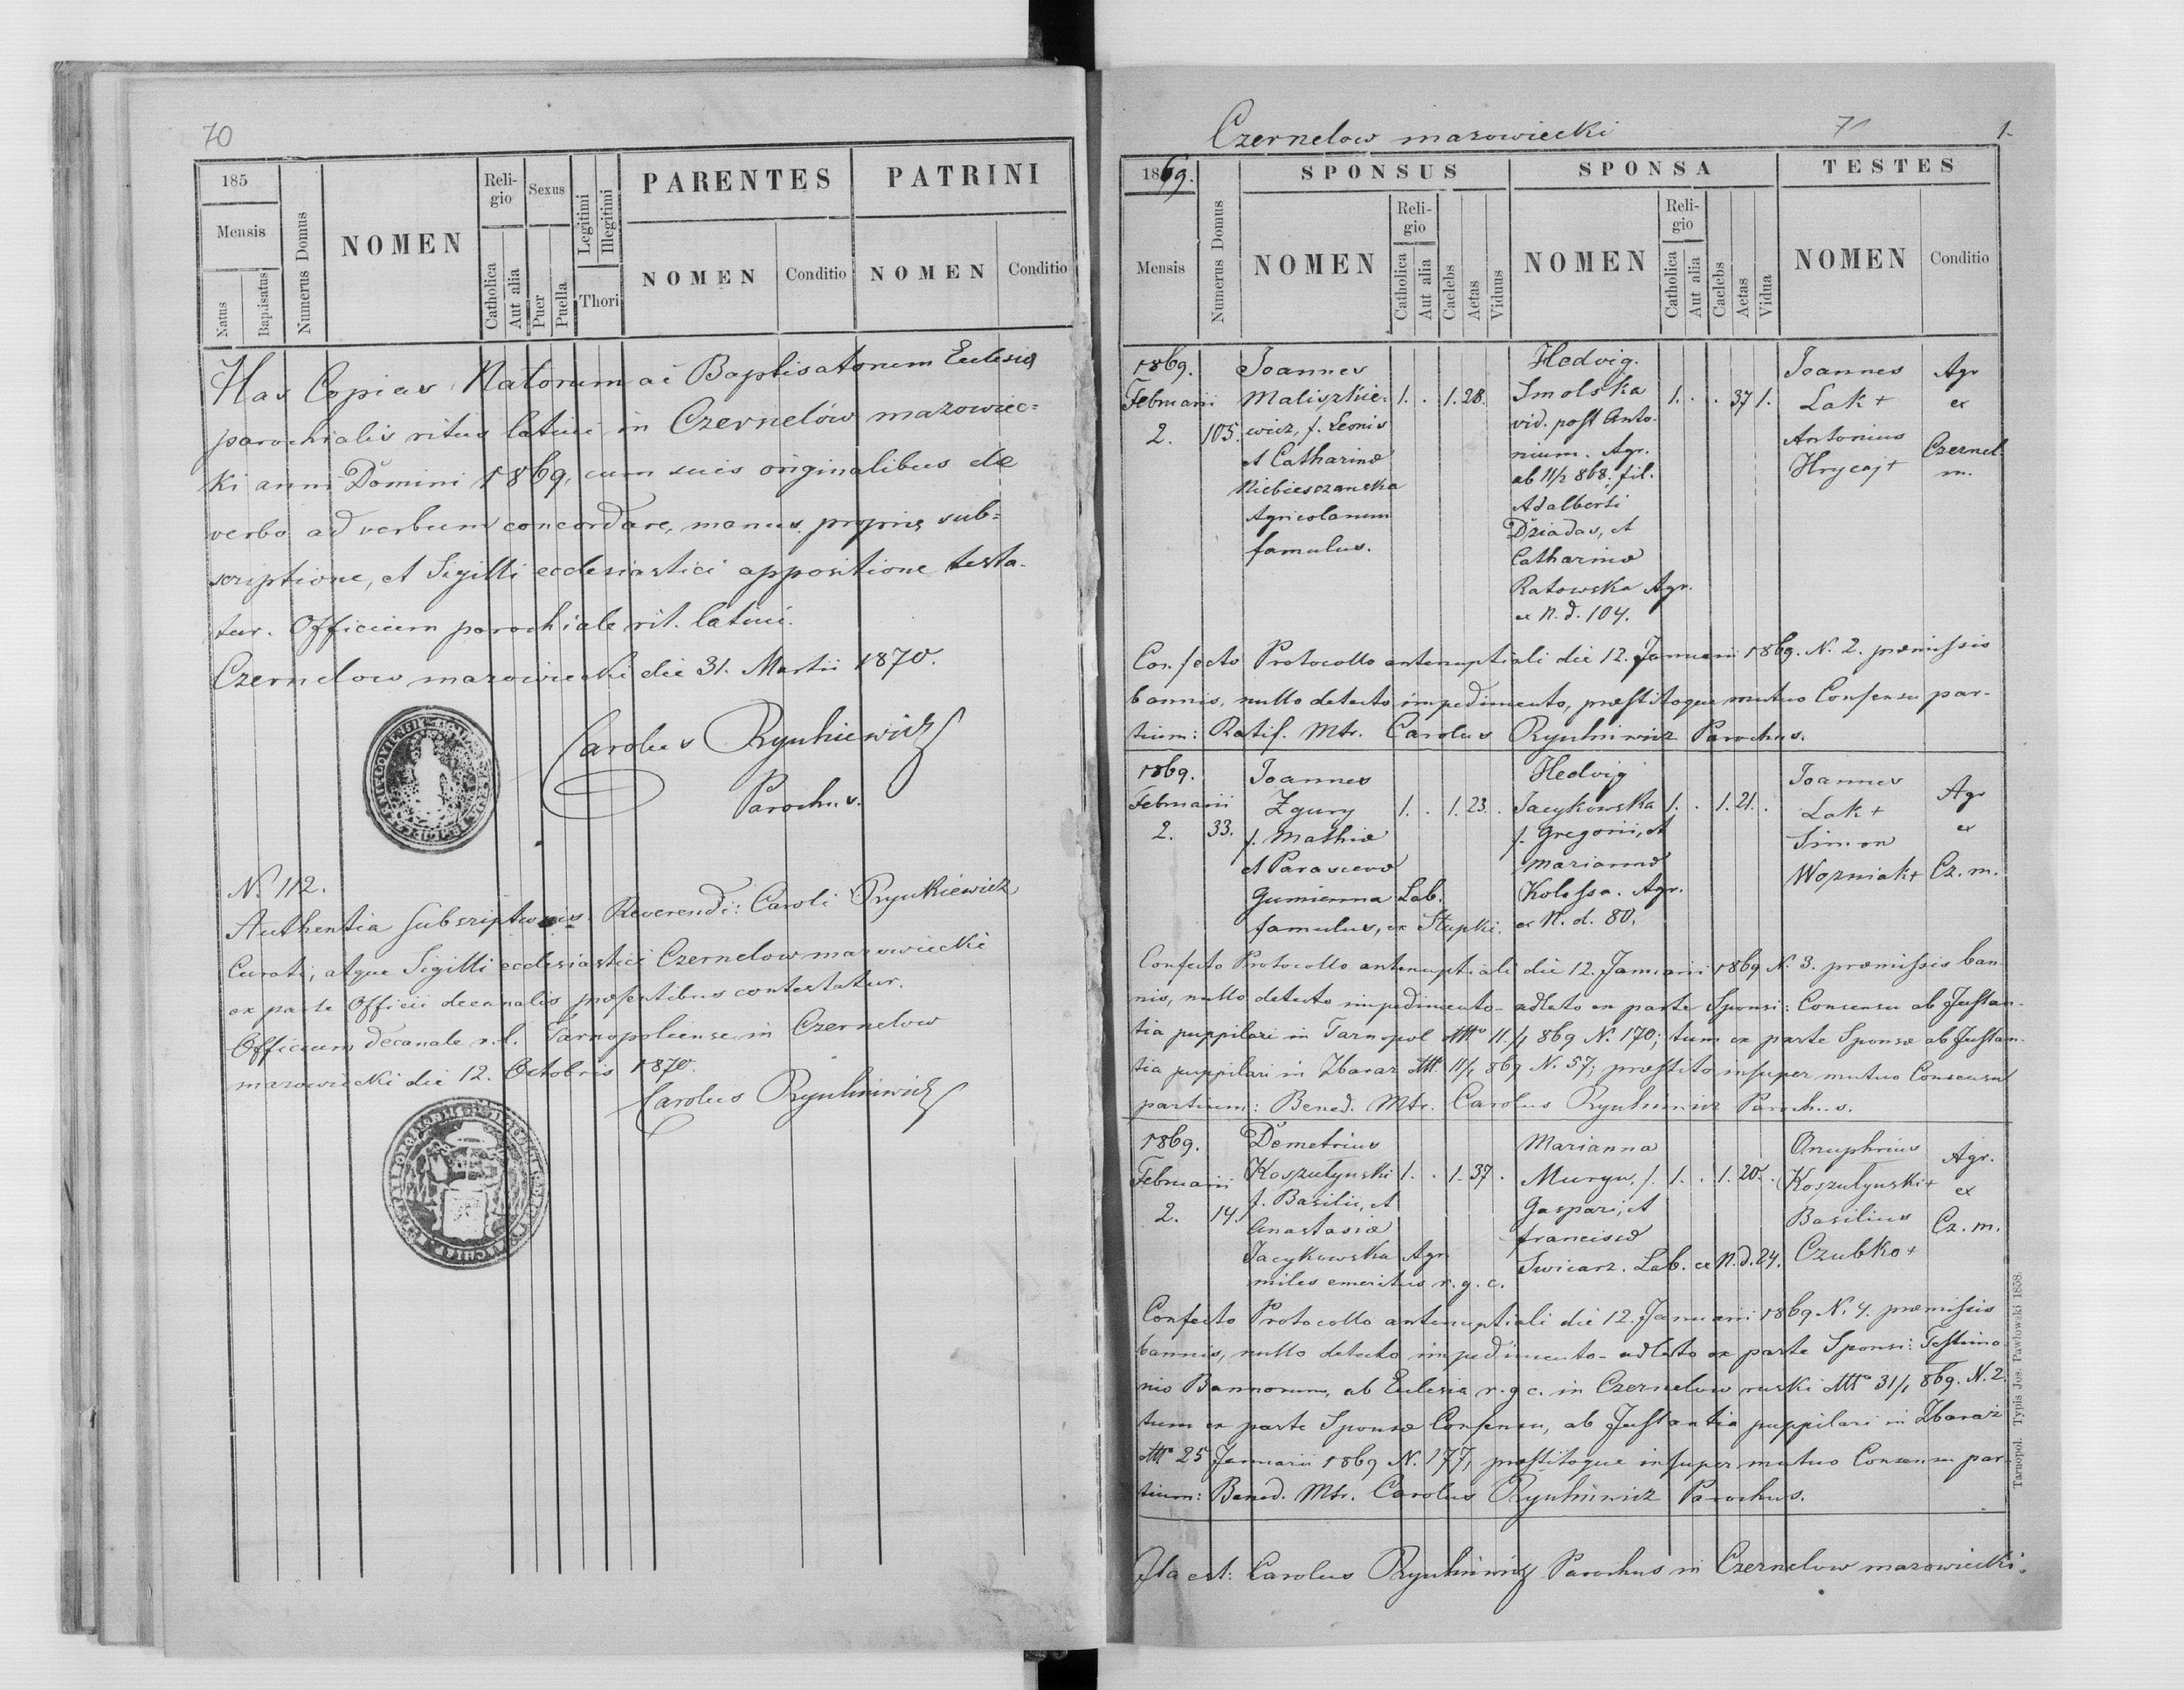 70
185
Mensis
Natus
Baptisatus
Numerus Domus
NOMEN
Reli-
gio
Catholica
Aut alia
Sexus
Puer
Puella
Legitimi
Illegitimi
Thori
PARENTES
NOMEN
Conditio
PATRINI
NOMEN
Conditio
Has Copias Natorum ac Baptisatorum Eclesiæ
parochialis ritus latini in Czernelów mazowiec=
ki anni Domini 1869, cum suis originalibus de
verbo ad verbum concordare, manus propriæ sub=
scriptione, et Sigilli ecclesiastici appositione testa-
tur. Officium parochiale rit. latini.
Czernelow mazowiecki die 31. Martii 1870.
Carolus Ryukiewicz
Parochus.
N. 112.
Authentia subscriptionis Reverendi: Caroli Ryukiewicz
Curati, atque Sigilli ecclesiastici Czernelow mazowiecki
ex parte Officii decanalis præsentibus contestatur.
Officium decanale r. l. Tarnopoliense in Czernelow
mazowiecki die 12. Octobris 1870.
Carolus Ryukiewicz
Czernelow mazowiecki
71
1.
1869.
Mensis
Numerus Domus
SPONSUS
NOMEN
Reli-
gio
Catholica
Aut alia
Caelebs
Aetas
Viduus
SPONSA
NOMEN
Reli-
gio
Catholica
Aut alia
Caelebs
Aetas
Vidua
TESTES
NOMEN
Conditio
1869. Joannes Hedvig. Joannes Agr
Februarii Maliszkie= 1. . 1. 28. Smolska 1. . . 37 1. Lak + ex
2. 105. wicz, f. Leonis vid. post Anto- Antonius Czernel.
et Catharinæ nium. Agr. Hrycaj + m.
Niebieszanska ab 11/2 868. fil.
Agricolarum Adalberti
famulus. Dziadas, et
Catharinæ
Ratowska Agr.
ex N. d. 104.
Confecto Protocollo antenuptiali die 12. Januarii 1869. N. 2. præmissis
bannis, nullo detecto impedimento, præstitoque mutuo Consensu par-
tium: Ratif. Mtr. Carolus Ryukiewicz Parochus.
1869. Joannes Hedvig Joannes Agr
Februarii Zgury 1. . 1. 23. . Jacykowska 1. . 1. 21. . Lak + ex
2. 33. f. Mathiæ f. Gregorii, et Simon
et Parascevæ Mariannæ Wozniak + Cz. m.
Gumienna Lab. Kolessa. Agr.
famulus, ex Stupki. ex N. d. 80.
Confecto Protocollo antenuptiali die 12. Januarii 1869 N. 3. præmissis ban-
nis, nullo detecto impedimento - adlato ex parte Sponsi: Consensu ab Instan-
tia puppilari in Tarnopol 11./1 869 N. 170; tum ex parte Sponsæ ab Instan-
tia puppilari in Zbaraz 11/1 869 N. 57; præstito insuper mutuo Consensu
partium: Bened. Mtr. Carolus Ryukiewicz Parochus.
1869. Demetrius Marianna Onuphrius Agr.
Februarii Koszutynski 1. . 1. 37. . Muryn, f. 1. . 1. 20. . Koszutynski + ex
2. 14. f. Basilii, et Gaspari, et Basilius Cz. m.
Anastasiæ Franciscæ Czubko +
Jacykowska Agr. Swicarz. Lab. ex N. d. 24.
miles emeritus r. g. c.
Confecto Protocollo antenuptiali die 12. Januarii 1869 N. 4. præmissis
bannis, nullo detecto impedimento - adlato ex parte Sponsi: Testimo
nio Bannorum, ab Eclesia r. g c. in Czernelow ruski 31/1 869. N. 2.
tum ex parte Sponsæ Consensu, ab Instantia puppilari in Zbaraz
25 Januarii 1869 N. 177, præstitoque insuper mutuo Consensu par-
tium: Bened. Mtr. Carolus Ryukiewicz Parochus.
Ita est: Carolus Ryukiewicz Parochus in Czernelow mazowiecki.
Tarnopol. Typis Jos. Pawlowski 1858.